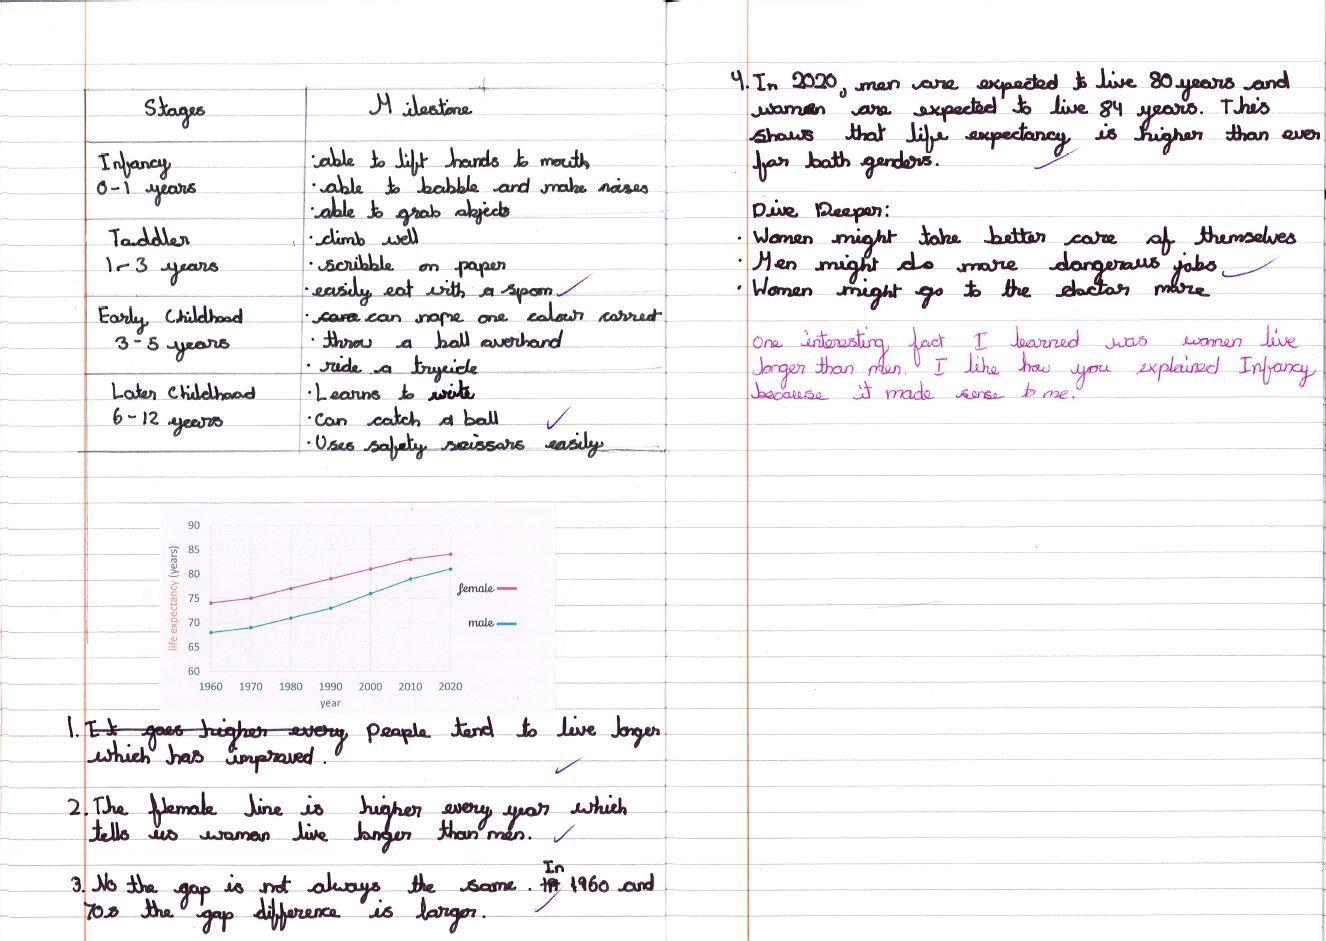 Stages Milestone
Infancy
0-1 years
· able to lift hands to mouth
· able to babble and make noises
· able to grab objects
Toddler
1-3 years
· climb well
· scribble on paper
· easily eat with a spoon
Early Childhood
3-5 years
· can nape one colour correct
· throw a ball overhand
· ride a trycicle
Later Childhood
6-12 years
· Learns to write
· Can catch a ball
· Uses safety scissors easily
90
85
80
75
70
65
60
life expectancy (years)
1960 1970 1980 1990 2000 2010 2020
year
female
male
1. It goes higher every People tend to live longer
which has improved.
2. The female line is higher every year which
tells us woman live longer than men.
3. No the gap is not always the same. In 1960 and
70s the gap difference is larger.
4. In 2020, men are expected to live 80 years and
women are expected to live 84 years. This
shows that life expectancy is higher than ever
for both genders.
Dive Deeper:
· Women might take better care of themselves
· Men might do more dangerous jobs
· Women might go to the doctor more
One interesting fact I learned was women live
longer than men. I like how you explained Infancy
because it made sense to me.